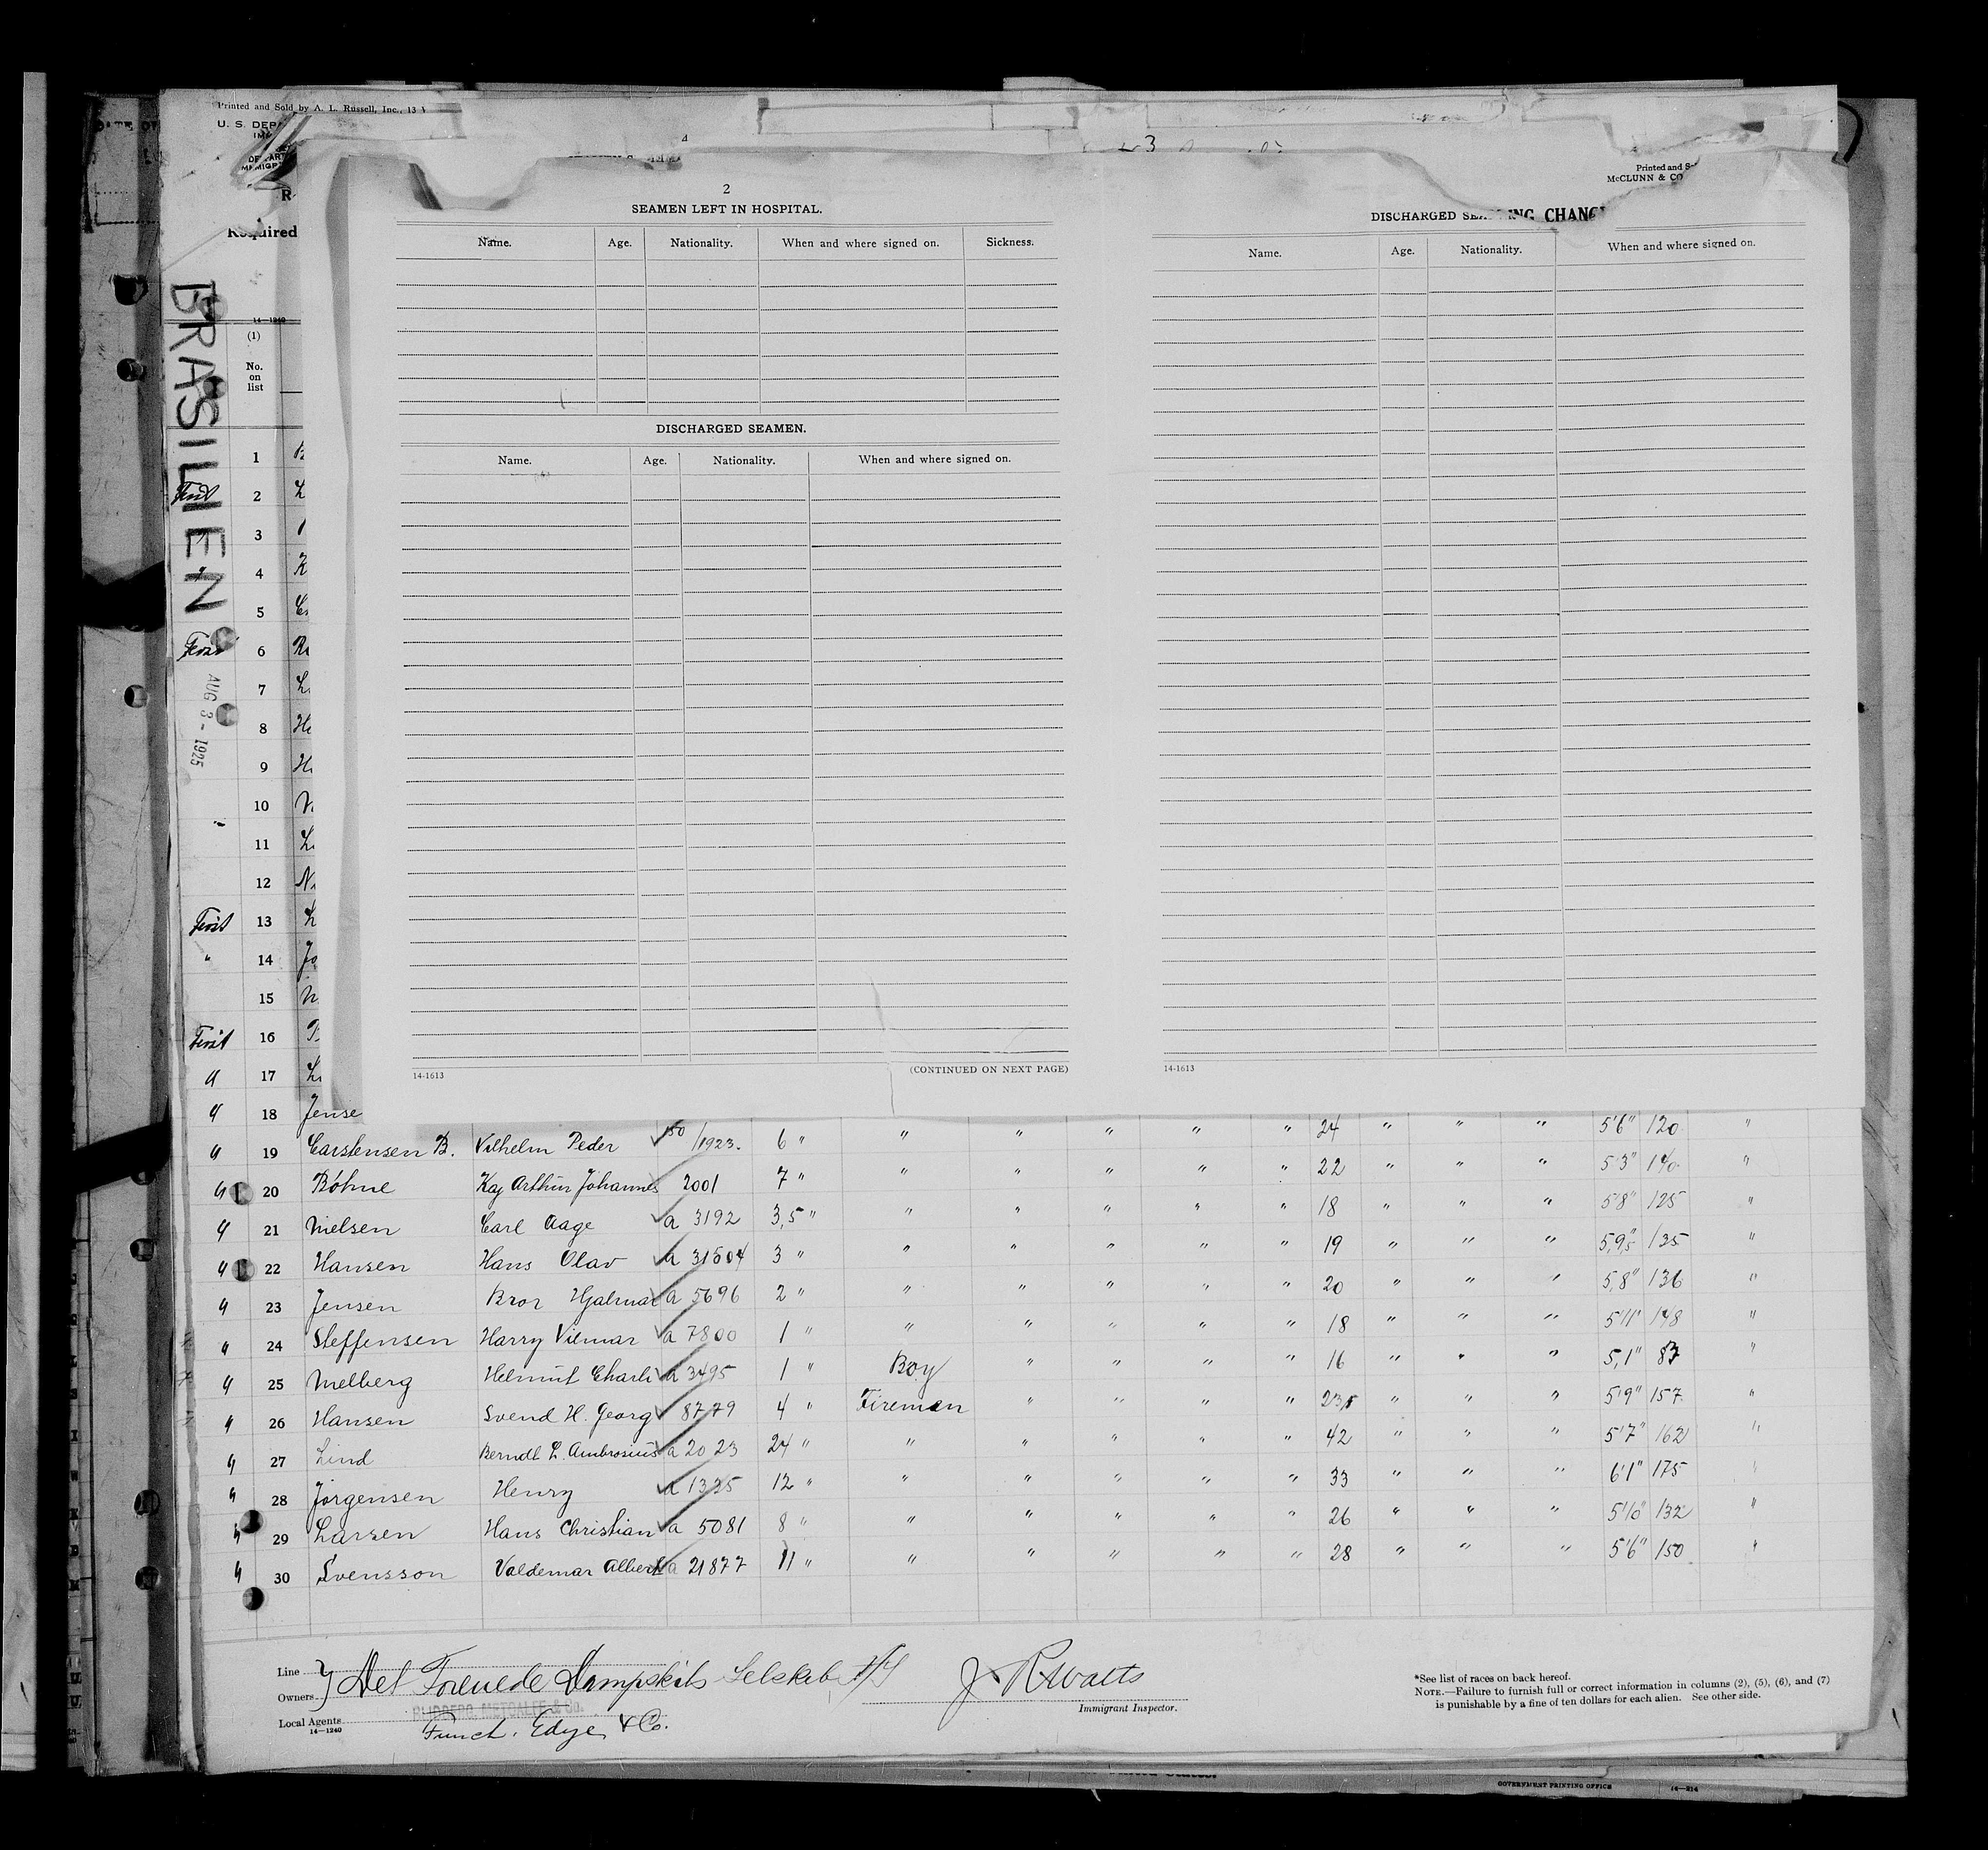 Printed and Sold by A. L. Russell, Inc., 13
U. S. DEP
Required
BRASILIEN
AUG 3 - 1925
14—1240
(1)
No. on list
1
2
3
4
5
6
7
8
9
10
11
12
First 13
" 14
15
First 16
" 17
" 18 Jense
Printed and S
McCLUNN & CO
2
SEAMEN LEFT IN HOSPITAL.
Name. Age. Nationality. When and where signed on. Sickness.
DISCHARGED SEAMEN.
Name. Age. Nationality. When and where signed on.
14-1613 (CONTINUED ON NEXT PAGE)
DISCHARGED SEA ING CHANG
Name. Age. Nationality. When and where signed on.
14-1613
" 19 Carstensen B. Vilhelm Peder 150/1923. 6 " " " " " " 24 " " " 5'6" 120 "
" 20 Böhne Kaj Arthur Johannes 2001 7 " " " " " " 22 " " " 5'3" 140 "
" 21 Nielsen Carl Aage a 3192 3,5 " " " " " " 18 " " " 5'8" 125 "
" 22 Hansen Hans Olav a 31504 3 " " " " " " 19 " " " 5,9,5" 135 "
" 23 Jensen Bror Hjalmar a 5696 2 " " " " " " 20 " " " 5,8" 136 "
" 24 Steffensen Harry Vilmar a 7800 1 " " " " " " 18 " " " 5'11" 148 "
" 25 Melberg Helmut Charli a 3495 1 " Boy " " " " 16 " " " 5,1" 83 "
" 26 Hansen Svend H. Georg 8779 4 " Firemen " " " " 23 " " " 5'9" 157 "
" 27 Lind Berndt L. Ambrosius a 2023 24 " " " " " " 42 " " " 5'7" 162 "
" 28 Jörgensen Henry a 1335 12 " " " " " " 33 " " " 6'1" 175 "
" 29 Larsen Hans Christian a 5081 8 " " " " " " 26 " " " 5'10" 132 "
" 30 Svensson Valdemar Albert a 21877 11 " " " " " " 28 " " " 5'6" 150 "
Line
Owners } Det Forenede Dampskibs Selskab A/S
J R Watts
Immigrant Inspector.
Local Agents Funch, Edye, & Co.
14—1240
*See list of races on back hereof.
NOTE.—Failure to furnish full or correct information in columns (2), (5), (6), and (7)
is punishable by a fine of ten dollars for each alien. See other side.
GOVERNMENT PRINTING OFFICE 14—214